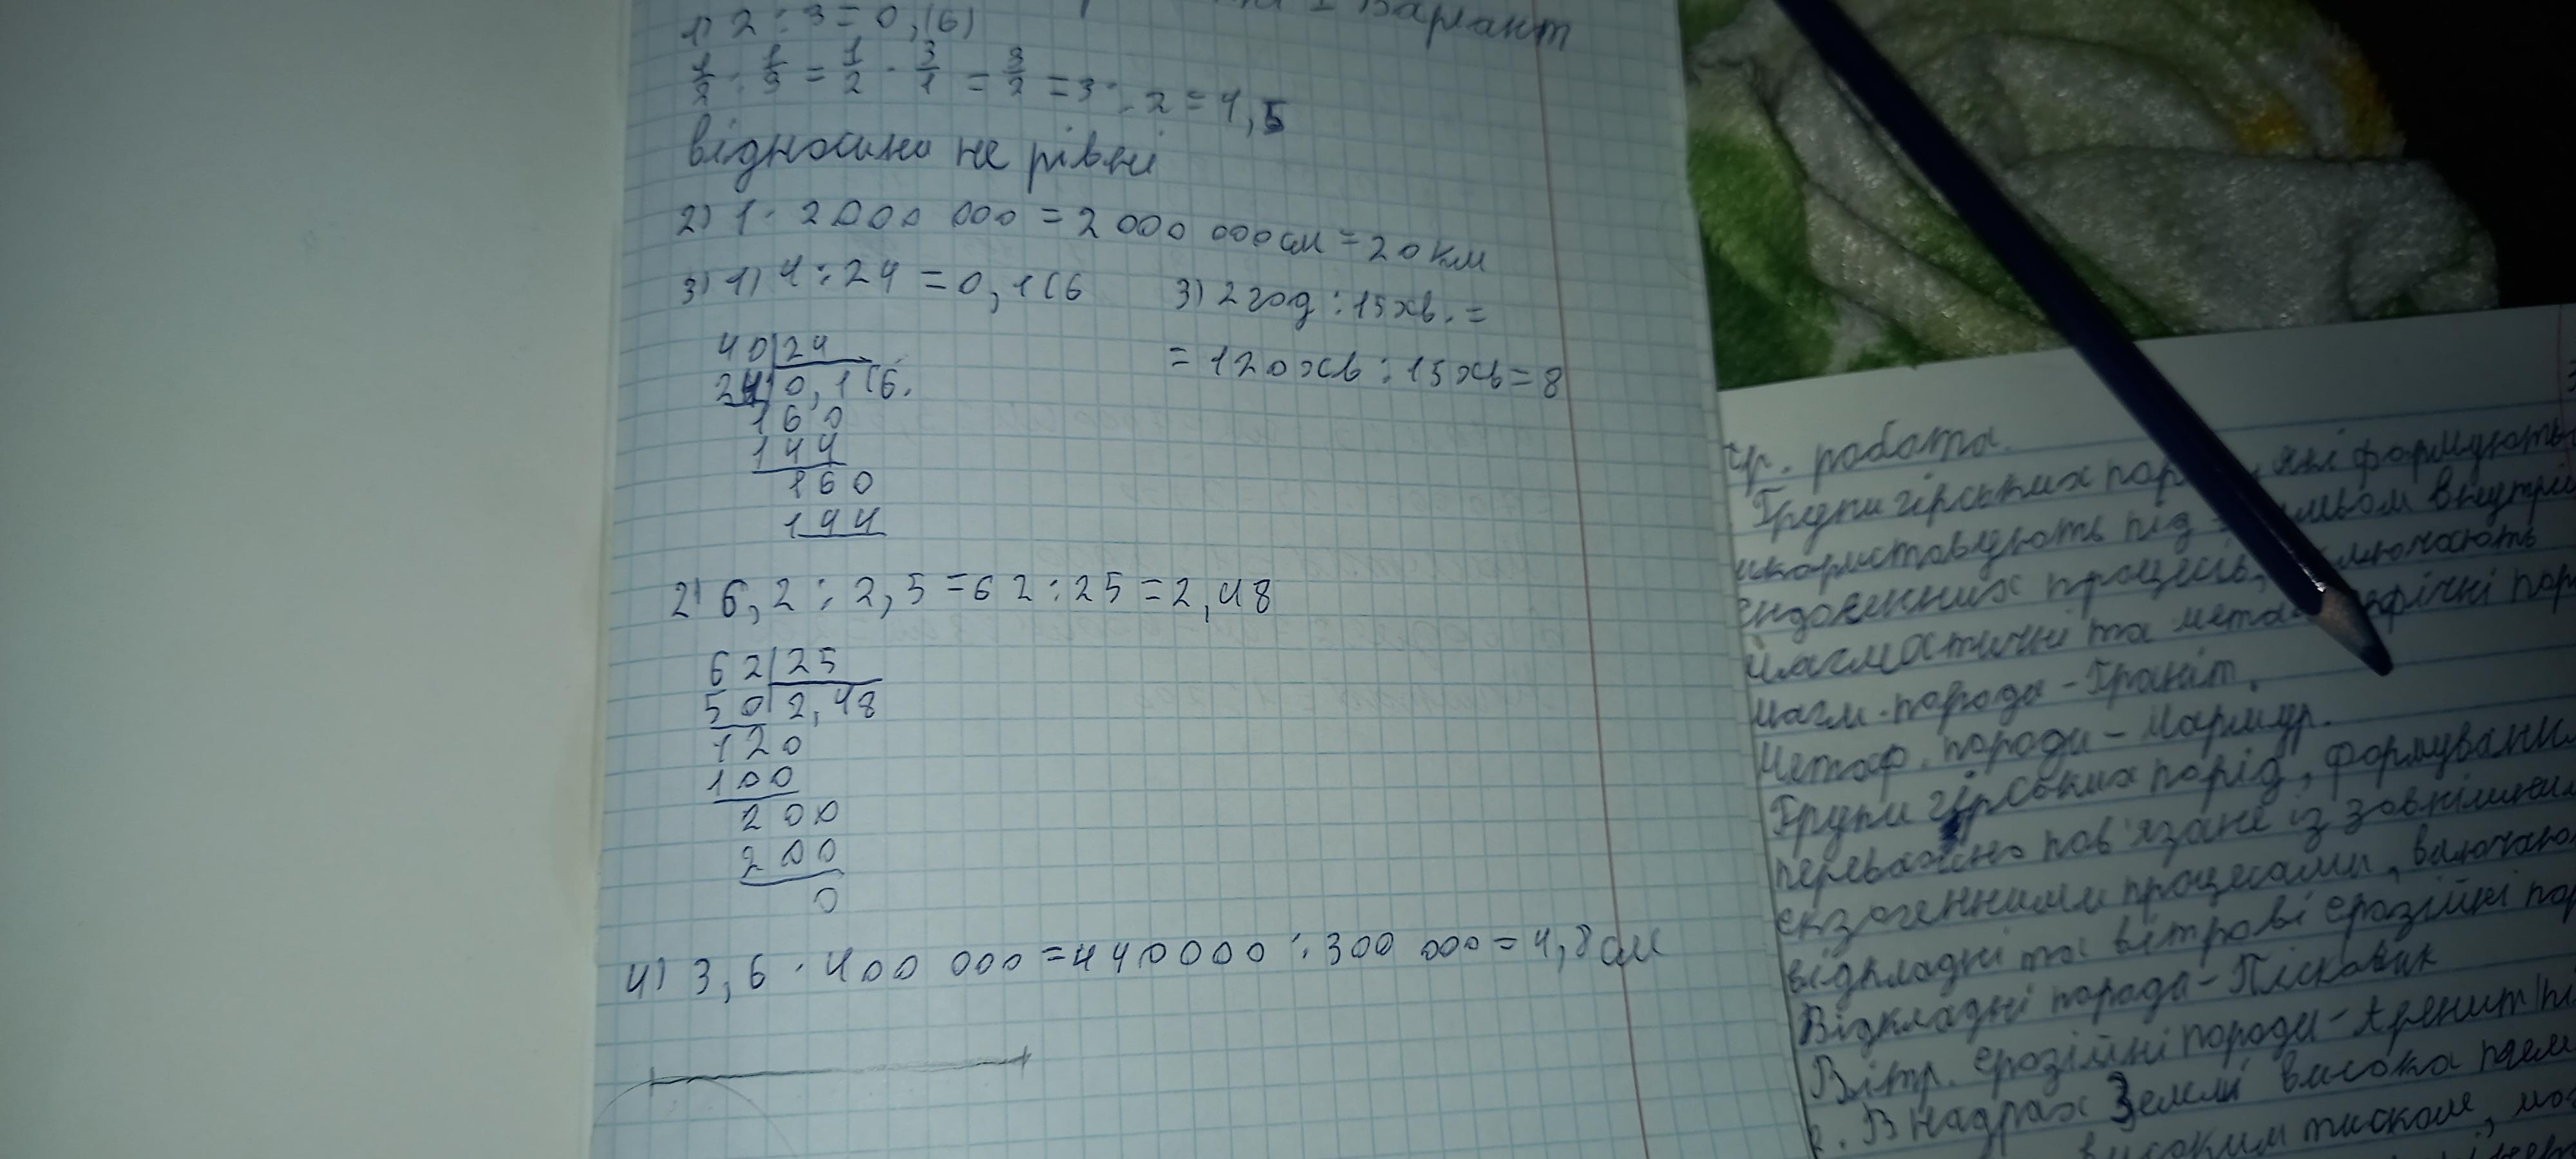 І Варіант
1) 2 : 3 = 0,(6)
1/2 : 1/3 = 1/2 · 3/1 = 3/2 = 3 : 2 = 1,5
відносини не рівні
2) 1 · 2000 000 = 2 000 000 см = 20 км
3) 1) 4 : 24 = 0,1(6
40 24
24 0,1(6.
160
144
160
144
3) 2 год : 15 хв. =
= 120 хв : 15 хв = 8
2) 6,2 : 2,5 = 62 : 25 = 2,48
62 25
50 2,48
120
100
200
200
0
4) 3,6 · 400 000 = 440000 : 300 000 = 4,8 см
робота.
Групи гірських які формують
під внутрі
процесів,
та
магм. порода - Граніт.
Метаф. породи - Мармур.
Групи гірських порід, формуванн
переважно пов'язане із зовнішнім
екзогенними процесами, включаю
відкладні та вітрові ерозійні пор
Відкладні порода - Пісковик
Вітр. ерозійні породи -
В надрах Землі висока
високим тиском,